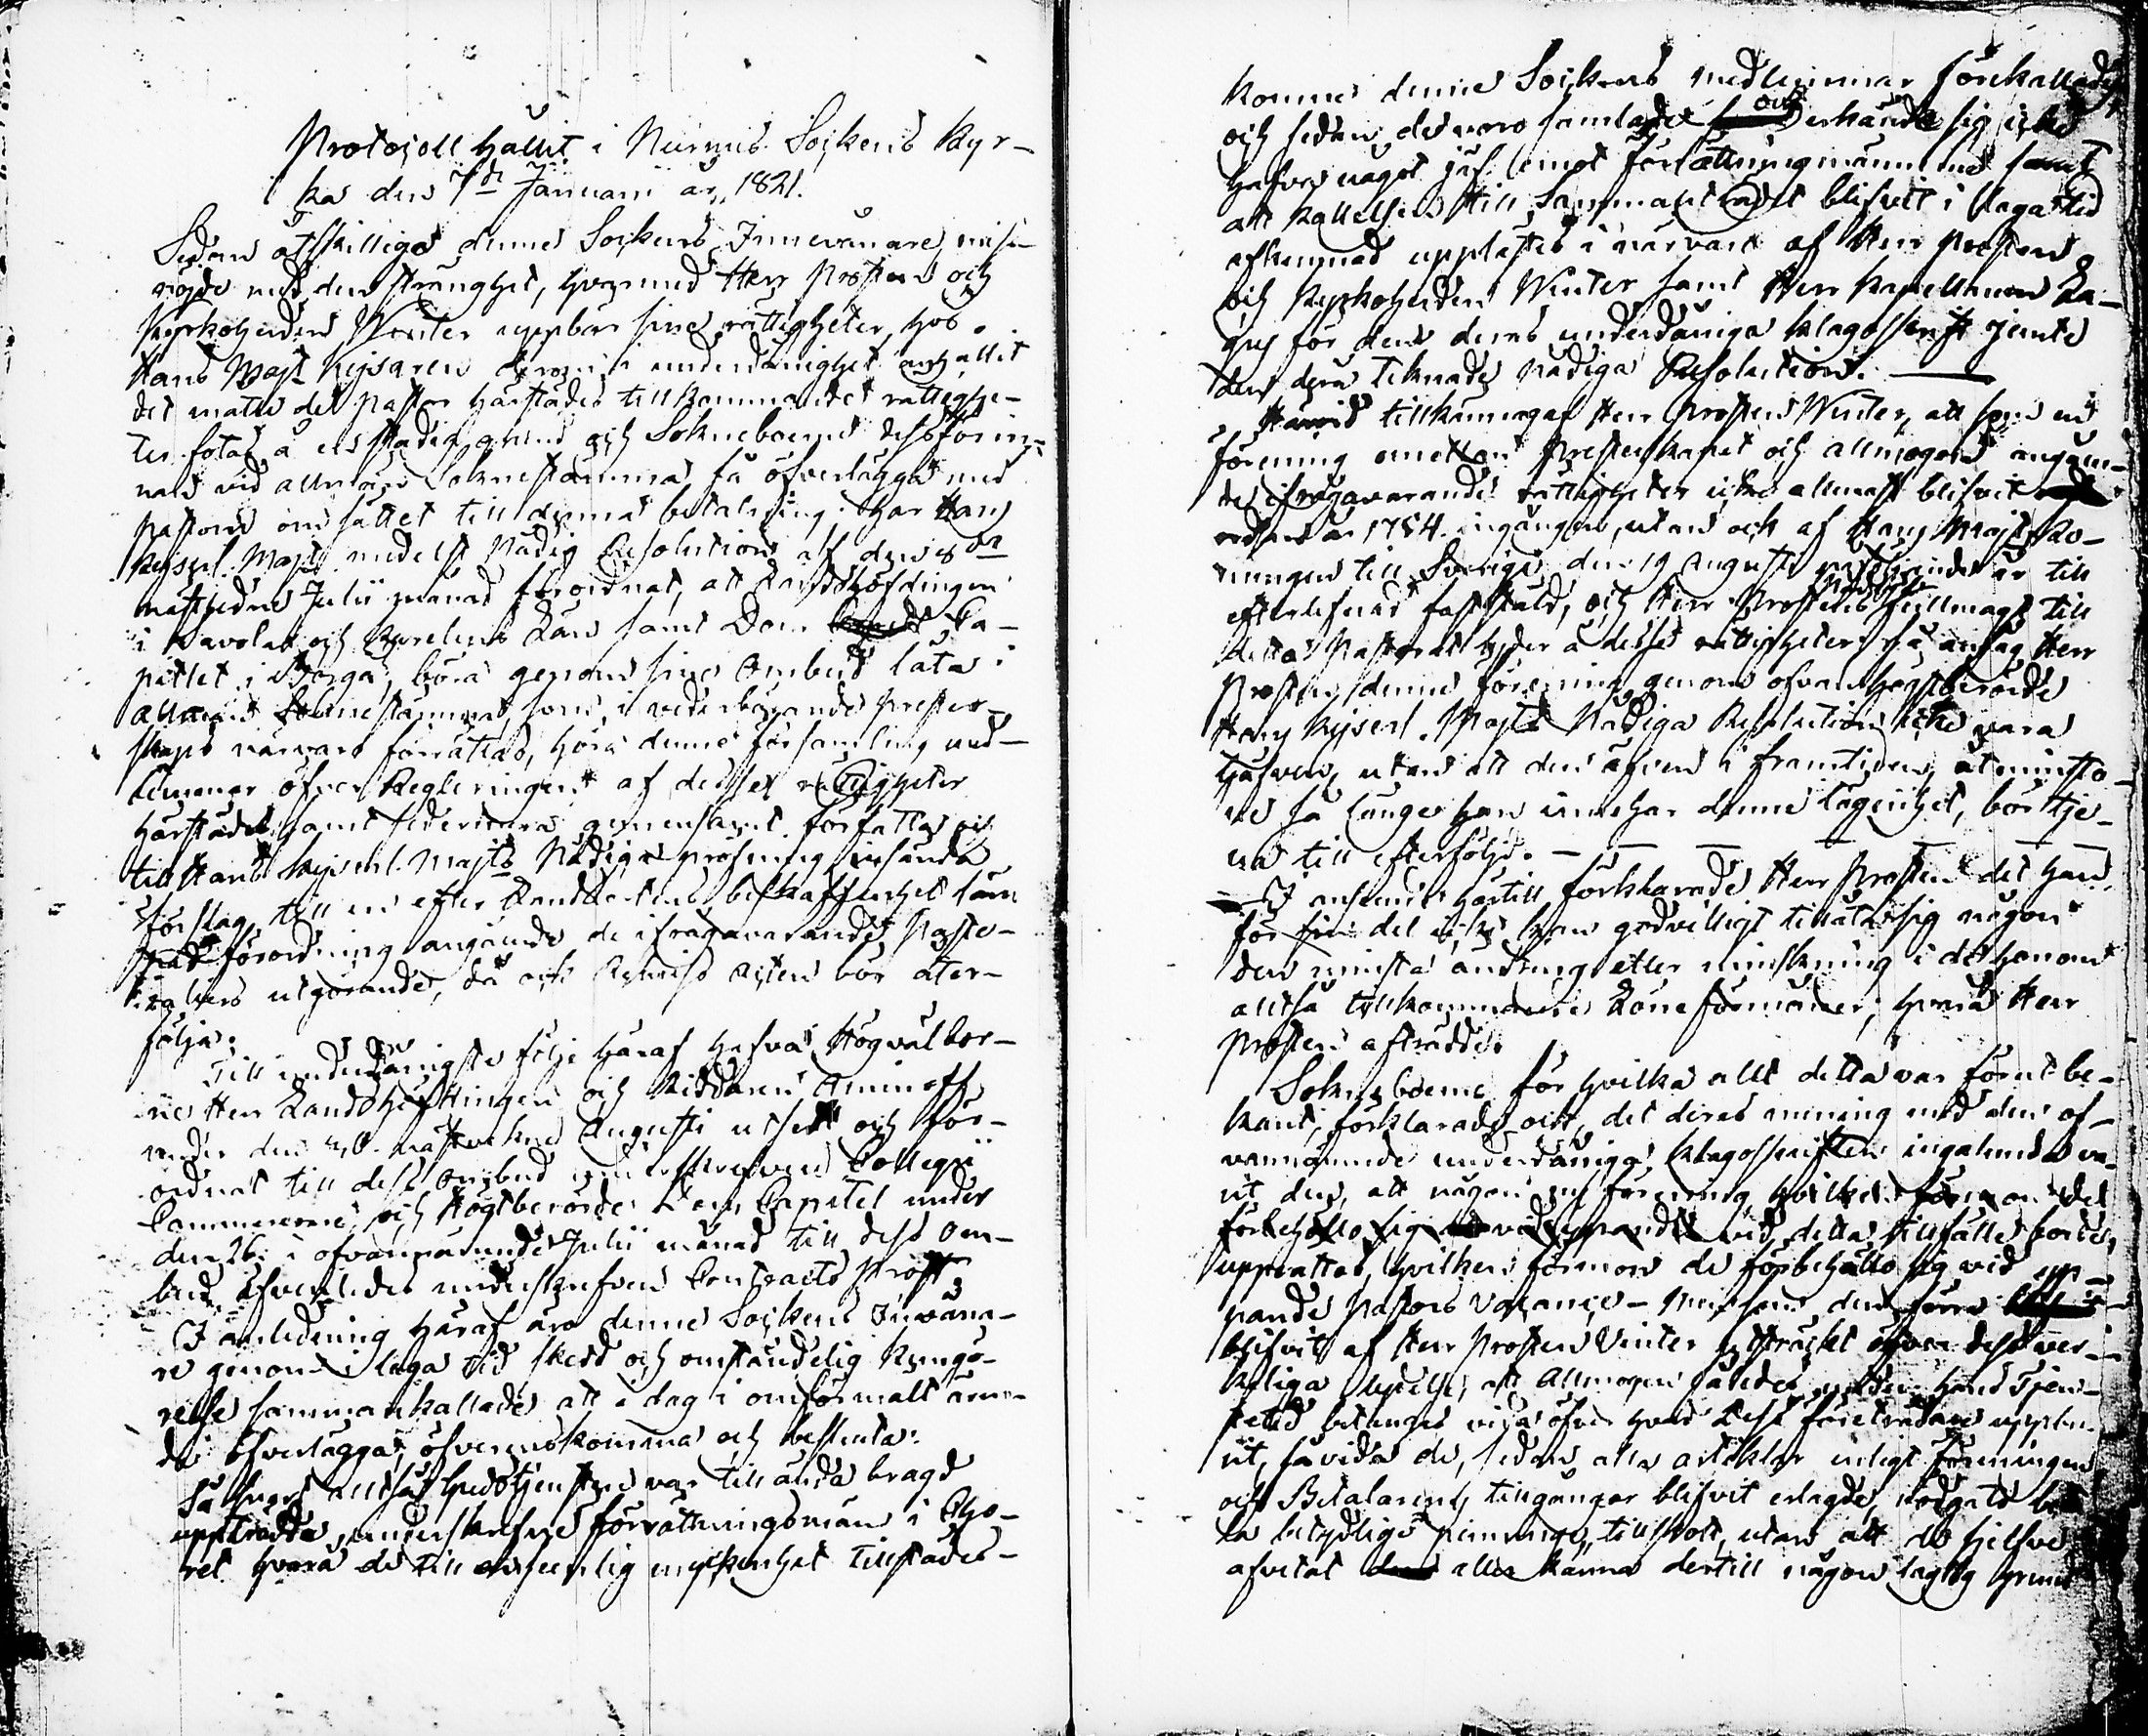 Protocoll hållit i Nurmis Sockens Kyr-
ka den 7de Januarii år 1821.
Sedan åtskillige denne Sockens Innevånare, miss-
nöjde med den stränghet, hvarmed Herr Prosten och
Kyrkoherden Winter uppbär sine rättigheter, hos
Hans Majt Kejsaren derom i underdånighet anhållit
det matte det Pastor härstädes tillkommande rättighe-
ter fotas å en stadig grund och Sokneboerne dessförin-
nan vid allmän Soknestämma få öfverlägga med
Pastorn om sättet till denna betalning; har Hans
Kejserl. Majt medelst Nådig Resolution af den 8de
nästledne Julii månad förordnat, att Landshöfdingen
i Savolax och Karelens Län samt Dom Ca-
pitlet i Borgå, böra genom sine Ombud låta i
allmän Soknestämma, som i vederbörande Prester-
skaps närvaro förrättas, höra denne församlings med-
lemmar öfver Regleringen af desse rättigheter
härstädes, samt sedermera gemensamt författa och
till Hans Kejserl. Majts Nådiga pröfning insända
förslag, till en efter Landsortens beskaffenhet läm-
pad förordning angående de ifrågavarande Pasto-
raliers utgörande, då och Remiss Acten bör åter-
följa;
Till underdånigste följe häraf hafva Högvälbor-
ne Herr Landshöfdingen och Riddaren Aminoff
under den 30 nästvekne Augusti utsedt och för-
ordnat till dess ombud underskrefven Collegii
Cammererare, och Högtberörde Dom Capitel under
den 26. i ofvannämnde Julii månad till dess Om-
bud äfvenledes underskrefven Contracts Prost.
I anledning häraf äro denne Sockens Invåna-
re genom i laga tid skedd och omständelig Kungö-
relse sammankallade att i dag i omförmält äm-
de öfverlägga, öfverenskomma och besluta.
Så snart alltså Gudstjensten var till ända bragd
uppträdde underskrefne förrättningsmän i Cho-
ret hvarä de till ansenlig myckenhet tillstädes-
komne denne Sockens medlemmar förekallades
och sedan de voro samlade och erkändt sig icke
hafva något jäf emot förrättningsmännerne samt
att kallelsen till Sammanträdet blifvit i laga tid
afkunnad upplästes i närvaro af Herr Prosten
och Kyrkoherden Winter samt Herr Kapellanen La-
gus för dem deras underdåniga klagoskrift jemte
den derå teknade Nådiga Resolution. —
Härvid tillkännagaf Herr Prosten Winter, att som en
förening emellan Presterskapet och allmogen angåen-
de ifrågavarande rättigheter icke allenast blifvit
redan år 1754. ingången, utan och af Hans Majt Ko-
nungen till Sverige den 19 Augusti påföljande år till
efterlefnad fastställd, och Herr Prostens fullmagt till
detta Pastorat lyder å desse rättigheter, så ansåg Herr
Prosten denne förening genom ofvanhögstberörde
Hans Kejserl. Majts Nådiga Resolution icke vara
häfven, utan att den äfven i framtiden, åtminsto-
ne så länge han innehar denne lägenhet, bör tje-
na till efterföljd. — — — — —
I anseende härtill förklarade Herr Prosten det han
för sin del icke kan godvilligt tillåta sig någon
den minsta ändring eller minskning i de honom
alltså tillkommande Löneförmåner; hvarå Herr
Prosten afträdde.
Sokneboerne för hvilka allt detta var förut be-
kant, förklarade att, det deras mening med den of-
vannämnde underdåniga klagoskriften ingalunda va-
rit den, att någon ny förening, hvilken förmon de
förbehöllo sig vid yppande vid detta tillfälle borde
upprättas, hvilken förmon de förbehöllo sig vid yp-
pande Pastors Vacance – Men som den förra
blifvit af Herr Prosten Winter utsträckt öfver dess ver-
keliga lydelse, att Allmogen således under hans tjen-
stetid betungas vida öfver hvad dess företrädare uppbu-
rit, såvida de, sedan alla artiklar enligt Föreningen
och Betalarens tillgångar blifvit erlagde, nödgats beta-
la betydlige penninge tillskott, utan att de sjelfve
afvetat eller kanna dertill någon laglig grund